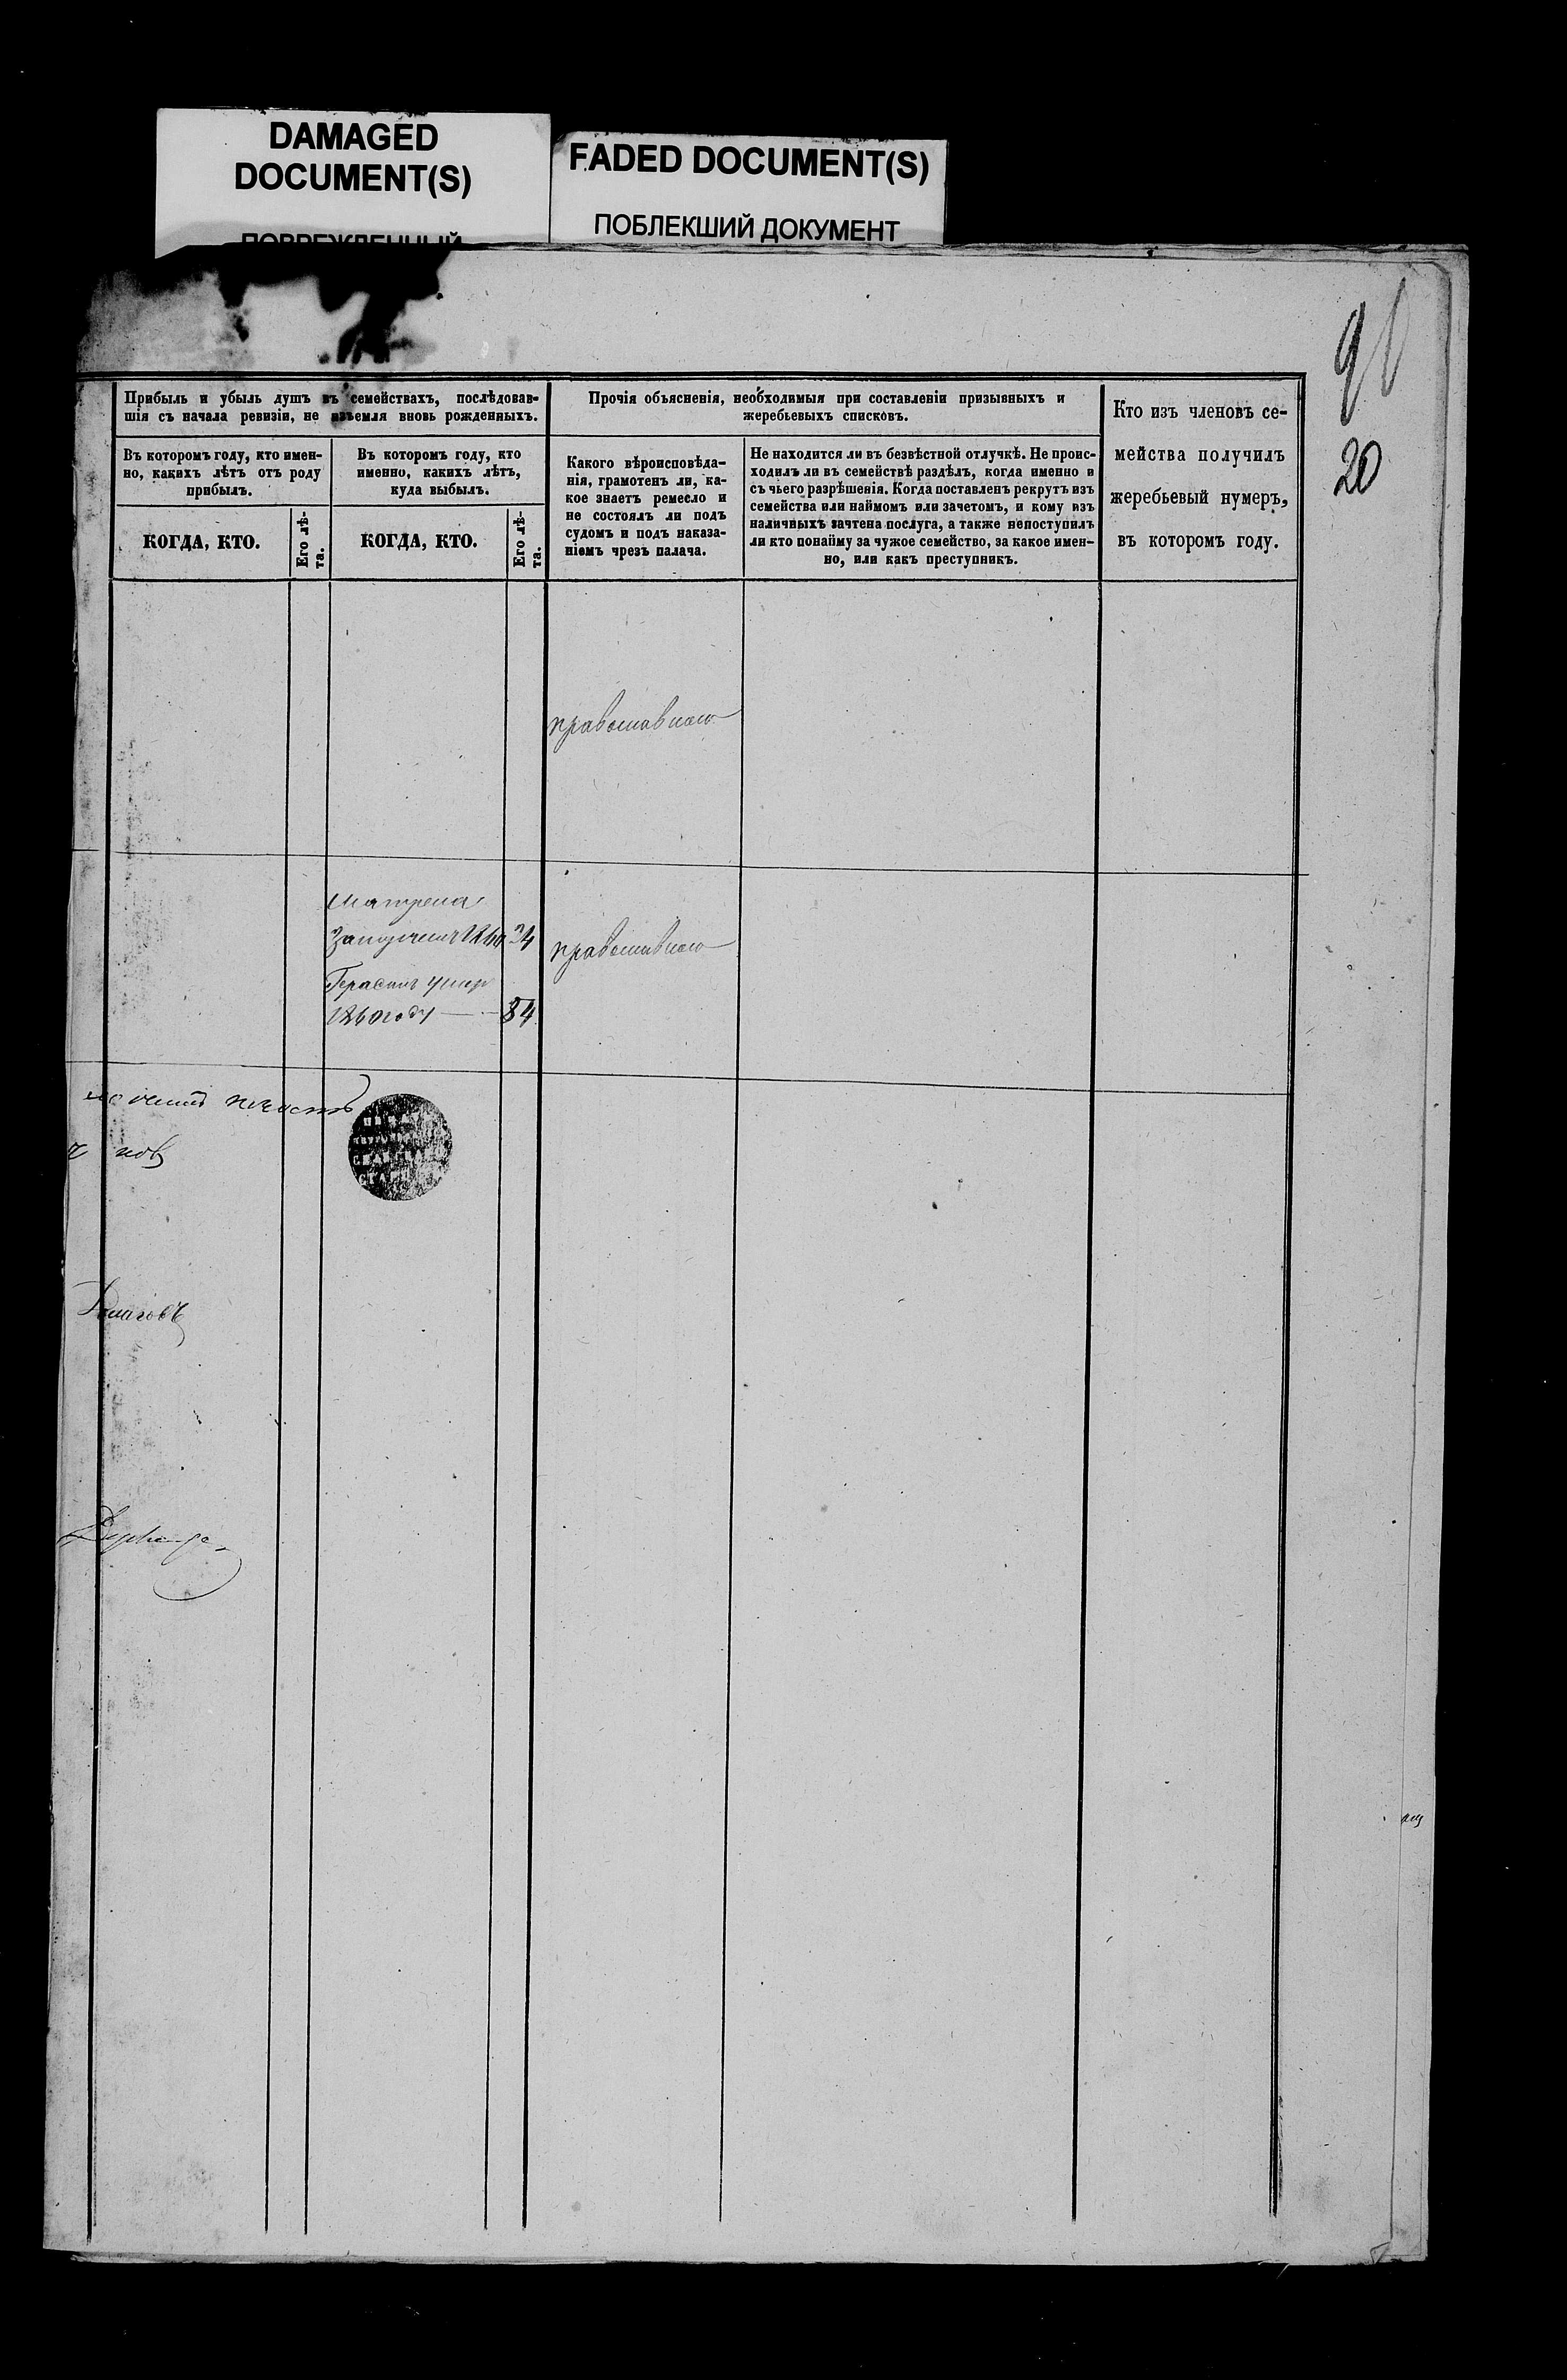 DAMAGED
DOCUMENT(S)
ПОВРЕЖДЕННЫЙ
FADED DOCUMENT(S)
ПОБЛЕКШИЙ ДОКУМЕНТ
90
20
Прибыль и убыль душъ въ семействахъ, послѣдовав-
шія съ начала ревизіи, не изъемля вновь рожденныхъ.
Въ которомъ году, кто имен-
но, какихъ лѣтъ отъ роду
прибылъ.
КОГДА, КТО.
Его лѣ-
та.
Въ которомъ году, кто
именно, какихъ лѣтъ,
куда выбылъ.
КОГДА, КТО.
Его лѣ-
та.
Прочія объясненія, необходимыя при составленіи призывныхъ и
жеребьевыхъ списковъ.
Какого вѣроисповѣда-
нія, грамотенъ ли, ка-
кое знаетъ ремесло и
не состоялъ ли подъ
судомъ и подъ наказа-
ніемъ чрезъ палача.
Не находится ли въ безвѣстной отлучкѣ. Не проис-
ходилъ ли въ семействѣ раздѣлъ, когда именно и
съ чьего разрѣшенія. Когда поставленъ рекрутъ изъ
семейства или наймомъ или зачетомъ, и кому изъ
наличныхъ зачтена послуга, а также непоступилъ
ли кто понайму за чужое семейство, за какое имен-
но, или какъ преступникъ.
Кто изъ членовъ се-
мейства получилъ
жеребьевый нумеръ,
въ которомъ году.
православнаго
Матрена
34
православнаго
Герасимъ умер
1860 году 84